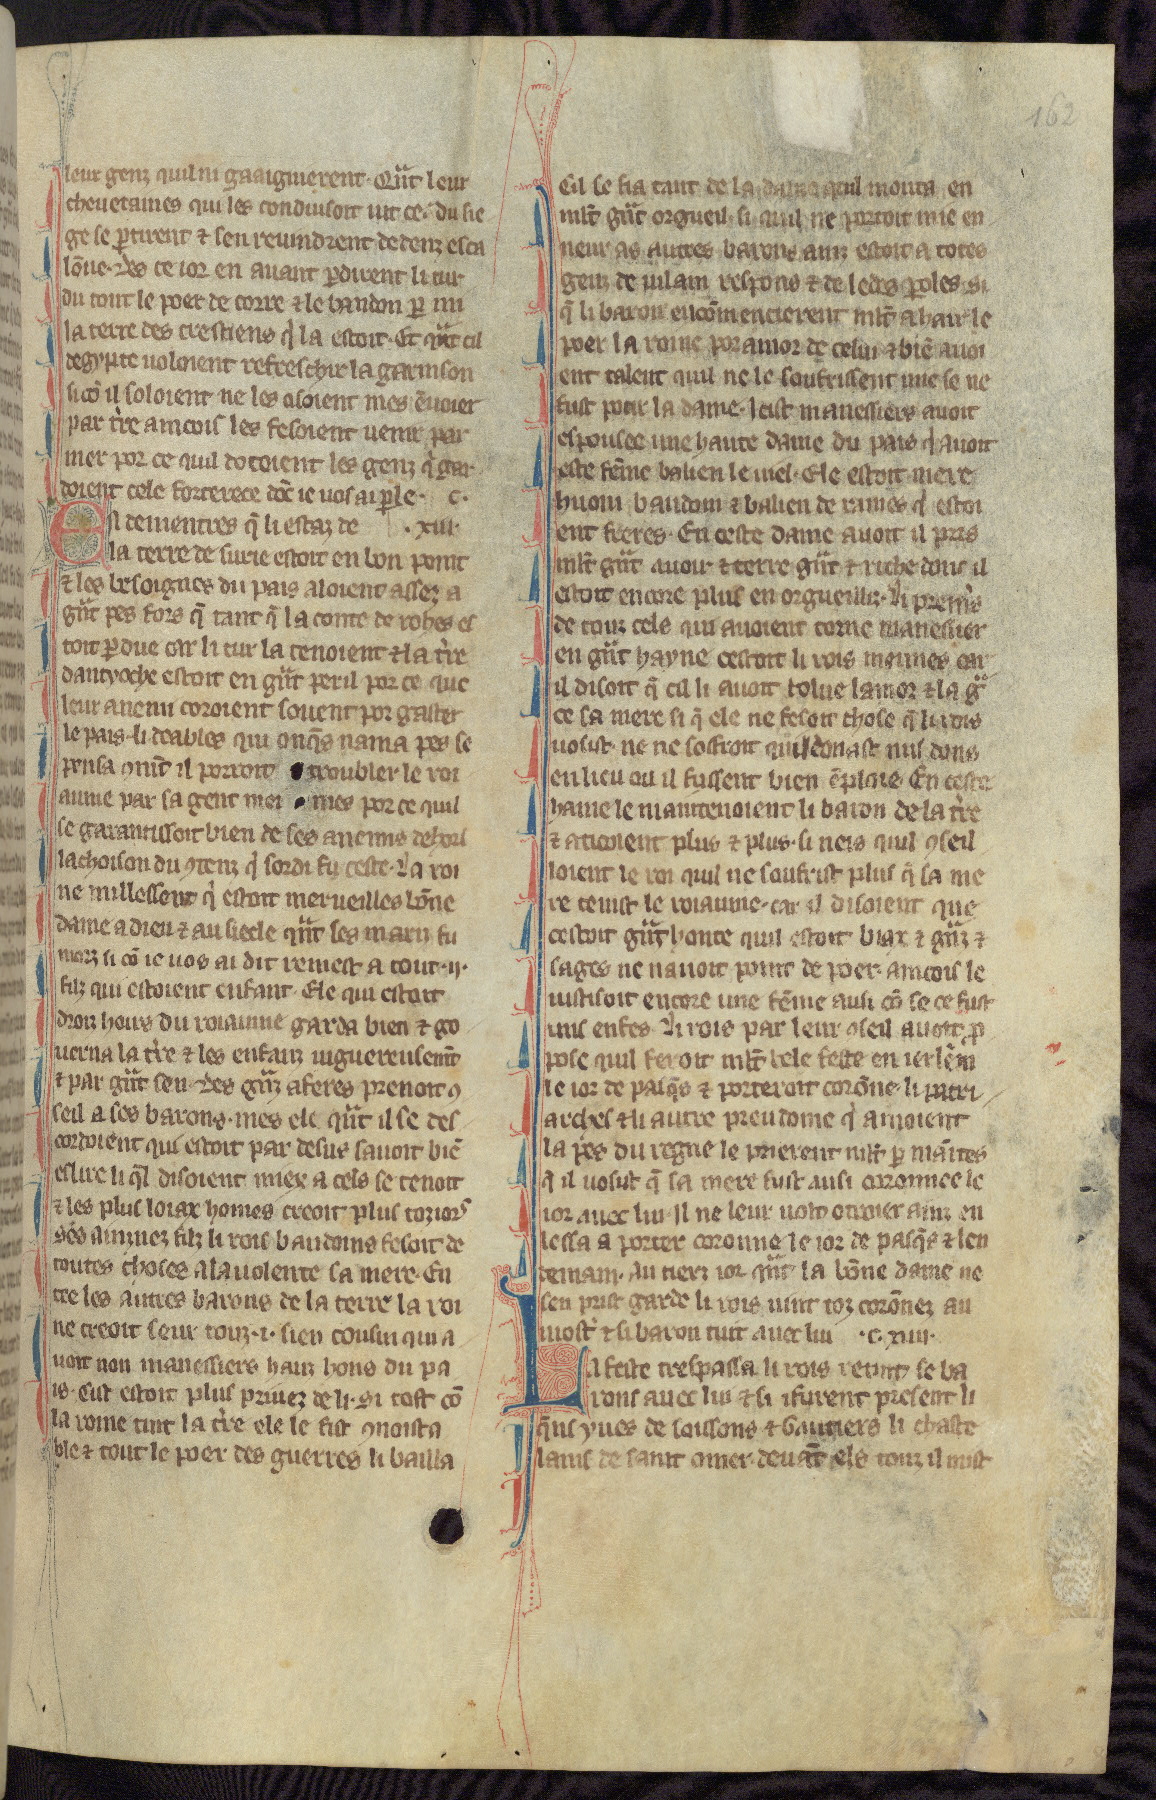 162
leur genz quil ni gaaignierent. Qu̅t leur
chevetaines qui les conduisoit vit ce. du sie
ge se p̲tirent ⁊ sen revindrent dedenz esca
lo̅ne. Des ce ior en avant p̲dirent li tur
du tout le poer de corre ⁊ le bandon p̲ mi
la terre des crestiens q̍ la estoit. Et qu̅t cil
degypte voloient refreschir la garnison
si co̅ il soloient ne les osoient mes e̅voier
par t̍re ancois les fesoient venir par
mer por ce quil dotoient les genz q̍ gar
doient cele forterece do̅t ie vos ai p̲le. .c.
En dementres q̅ li estaz de .xiii.
la terre de surie estoit en bon point
⁊ les besoignes du pais aloient assez a
gu̅t pes fors q̅ tant q̅ la conte de rohes es
toit p̲due car li tur la tenoient ⁊ la t̍re
dantyoche estoit en gu̅t peril por ce que
leur anemi coroient sovent por gaster
le pais. li deables qui onq̅s nama pes se
pensa ꝯm̅t il porroit troubler le roi
aume par sa gent mei mes por ce quil
se garantissoit bien de ses anemis dehors
lachoison du ꝯtenz q̍ sordi fu ceste. La roi
ne millessent q̍ estoit merveilles bo̅ne
dame a dieu ⁊ au siecle qu̅t ses mariz fu
morz si co̅ ie vos ai dit remest a tout .ii.
filz qui estoient enfant. Ele qui estoit
droiz hoirs du roiaume garda bien ⁊ go
verna la t̍re ⁊ les enfanz viguereusem̅t
⁊ par gu̅t sen. Des gu̅z aferes prenoit ꝯ
seil a ses barons. mes ele qu̅t il se des
cordoient qui estoit par desus savoit bie̅
eslire li q̅l disoient miex a cels se tenoit
⁊ les plus loiax homes creoit plus toziors
Ses ainznez filz li rois baudoins fesoit de
toutes choses a la volente sa mere. En
tre les autres barons de la terre la roi
ne creoit seur touz .i. sien cousin qui a
voit non manessiers hauz hons du pa
is. Cist estoit plus privez de li. Si tost co̅
la roine tint la t̍re ele le fist ꝯnesta
ble ⁊ tout le poer des guerres li bailla
Cil se fia tant de la dame quil monta en
ml̅t gu̅t orgueil. si quil ne portoit mie en
neur as autres barons ainz estoit a totes
genz de vilain respons ⁊ de ledes p̲oles. Si
q̅ li baron enco̅mencierent ml̅t a hair le
poer la roine por amor de celui ⁊ bie̅ avoi
ent talent quil ne le soufrissent mie se ne
fust pour la dame. Icist manessiers avoit
espousee une haute dame du pais q̍ avoit
este fe̅me balien le viel. Ele estoit mere
huon baudoin ⁊ balien de rames q̍ estoi
ent freres. En ceste dame avoit il pris
ml̅t gu̅t avoir ⁊ terre gu̅t ⁊ riche donc il
estoit encore plus en orgueilliz. Li prem̍s
de touz cels qui avoient torne manessier
en gu̅t hayne cestoit li rois meimes car
il disoit q̅ cil li avoit tolue lamor ⁊ la g̅
ce sa mere si q̅ ele ne fesoit chose q̅ li rois
vosist. ne ne sofroit quil donast nus dons
en lieu ou il fussent bien e̅ploie. En ceste
haine le maintenoient li baron de la t̍re
⁊ atisoient plus ⁊ plus. si neis quil ꝯseil
loient le roi quil ne soufrist plus q̅ sa me
re tenist le roiaume. car il disoient que
cestoit gu̅t honte quil estoit biax ⁊ gu̅z ⁊
sages ne navoit point de poer. ancois le
iustisoit encore une fe̅me ausi co̅ se ce fust
uns enfes. Li rois par leur ꝯseil avoit p̲
pose quil feroit ml̅t bele feste en ierl̅em
le ior de pasq̅s ⁊ porteroit coro̅ne. li patri
arches ⁊ li autre preudome q̍ amoient
la pes du regne le prierent ml̅t p̲ mai̅tes
q̍ il vosist q̅ sa mere fust ausi coronnee le
ior avec lui. Il ne leur volt otroier ainz en
lessa a porter coronne le ior de pasq̅s ⁊ len
demain. Au tierz ior qu̅t la bo̅ne dame ne
sen prist garde li rois vint toz coro̅nez au
most̍ ⁊ si baron tuit avec lui .c. xiiii.
La feste trespassa. li rois retint se ba
rons avec lui ⁊ si i furent present li
q̅ns yves de soissons ⁊ Gautiers li chaste
lains de saint omer. deva̅t els touz il mist